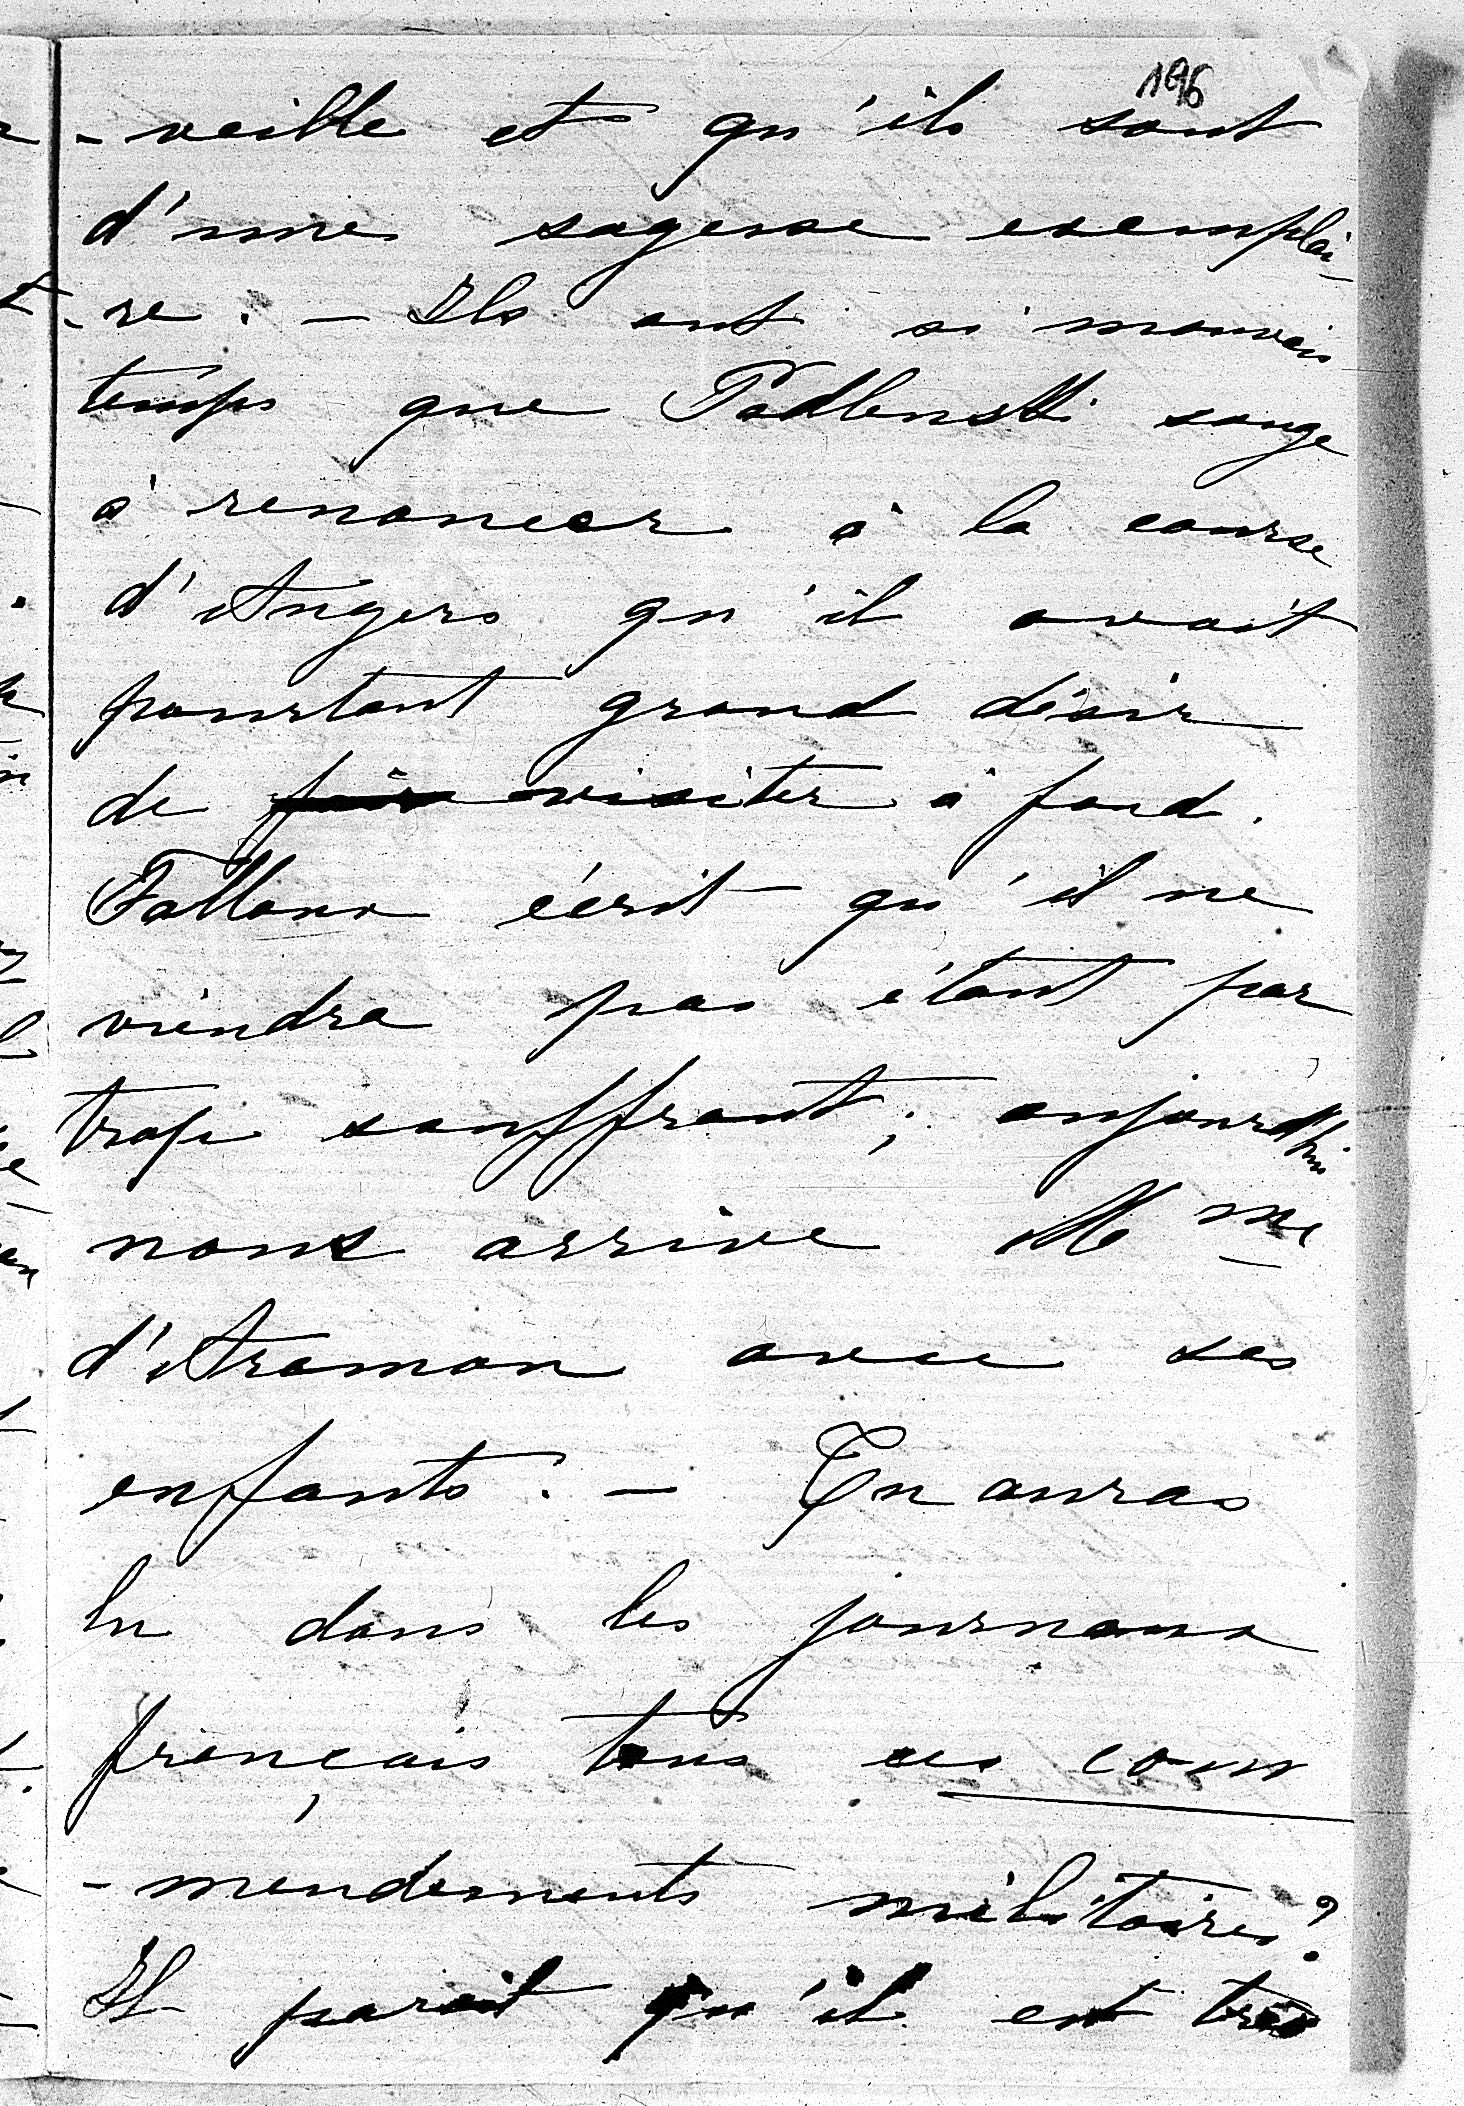 196
- veille et qu'ils sont
d'une sagesse exemplai-
- re. - Ils ont si mauvais
temps que Podlenski songe
à renoncer à la course
d'Angers qu'il avait
pourtant grand désir
de visiter à fond.
écrit qu'il ne
viendra pas étant par
trop souffrant; aujourd'hui
nous arrive Mme
d'Aramon avec ses
enfants. - Tu auras
lu dans les journaux
français tous ces com
- mendements militaires?
Il parait qu'il est très